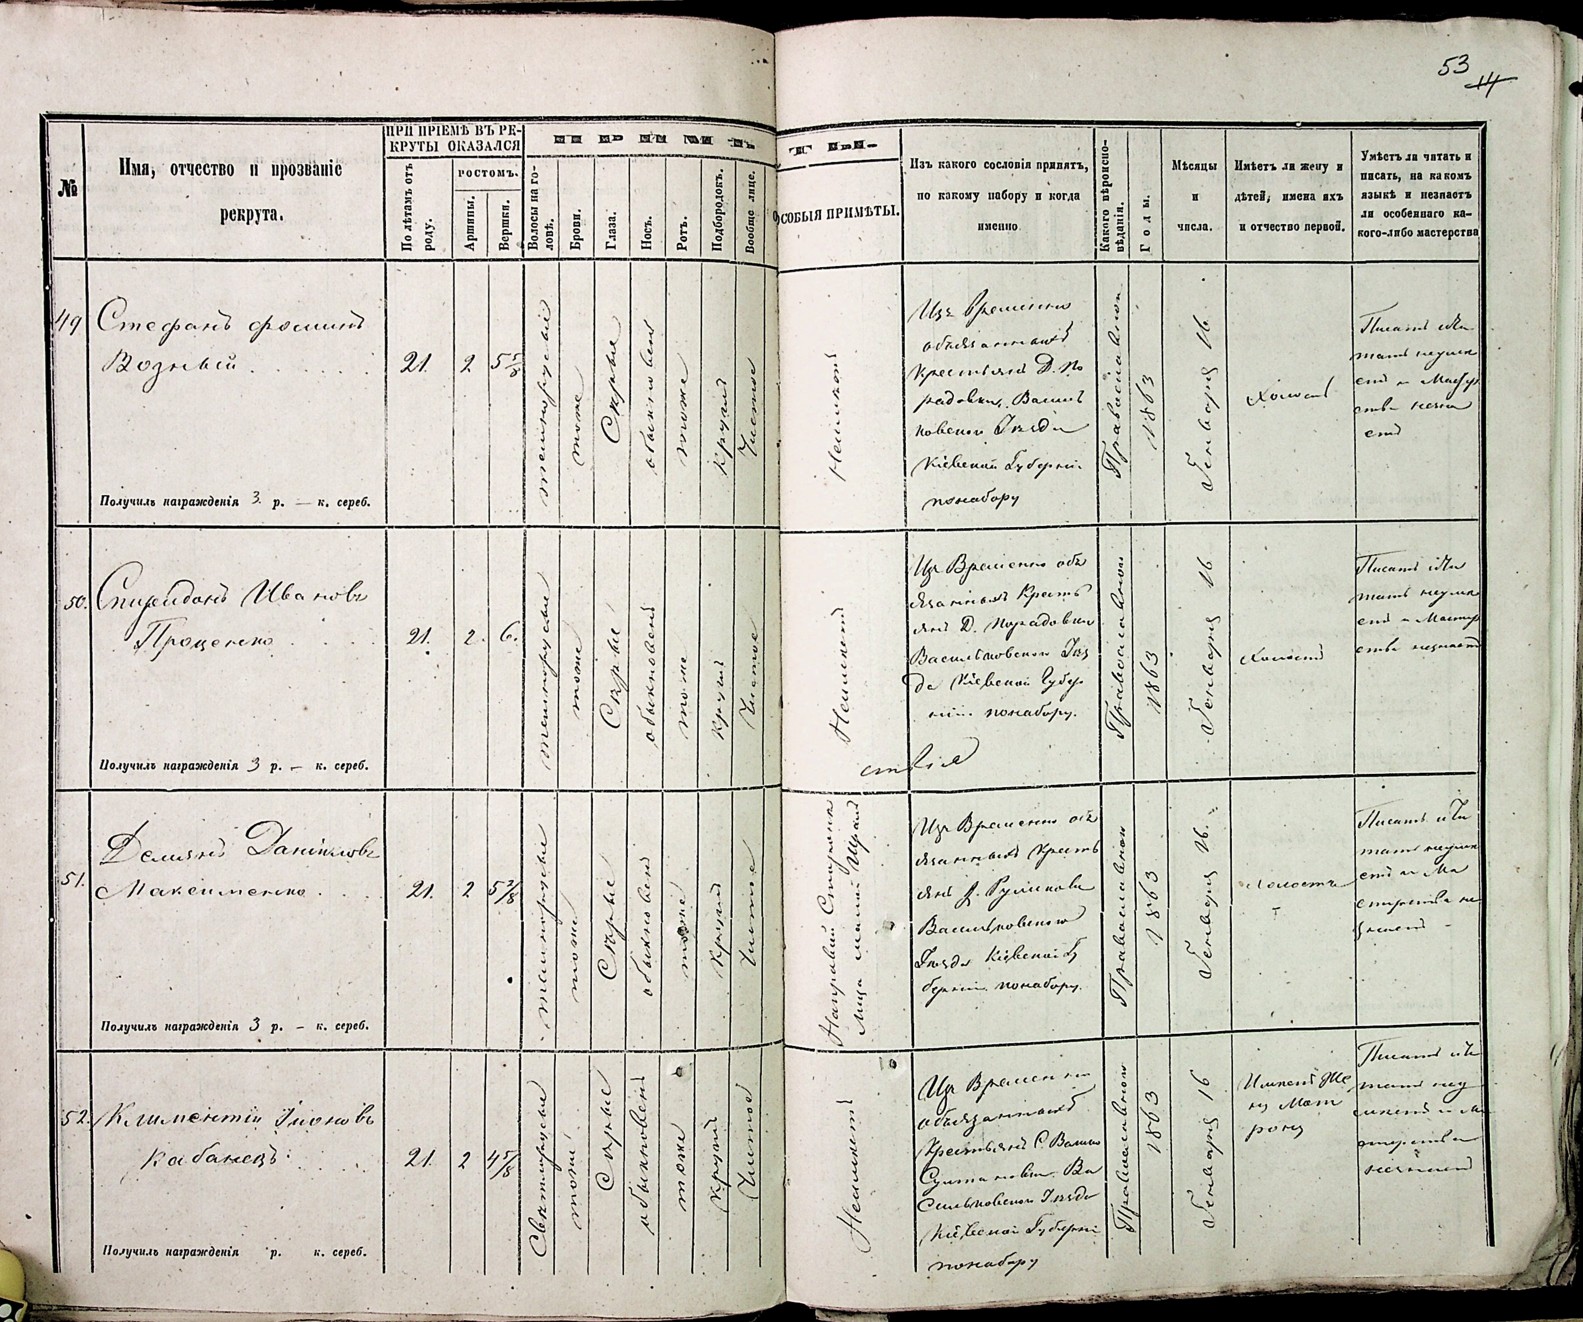 53
14
№
Имя, отчество и прозваніе
рекрута.
ПРИ ПРІЕМѢ ВЪ РЕ-
КРУТЫ ОКАЗАЛСЯ
По лѣтамъ отъ
роду.
РОСТОМЪ.
Аршины.
Вершки.
ПРИМѢТЫ.
Волосы на го-
ловѣ.
Брови.
Глаза.
Носъ.
Ротъ.
Подбородокъ.
Вообще лице.
ОСОБЫЯ ПРИМѢТЫ.
Изъ какого сословія принятъ,
по какому набору и когда
именно
Какого вѣроиспо-
вѣданія.
Годы.
Мѣсяцы
и
числа.
Имѣетъ ли жену и
дѣтей, имена ихъ
и отчество первой.
Умѣетъ ли читать и
писать, на какомъ
языкѣ и незнаетъ
ли особеннаго ка-
кого-либо мастерства
49
Стефанъ Фоминъ
Возный
21. 2 5 5/8
темнорусые
тоже
Сѣрые
обыкновен
тоже
круглъ
Чистое
Неимѣетъ
Изъ Временно
обязанныхъ
крестьянъ Д. По
радовки, Василь
ковскаго Уѣзда
Кіевской Губерніи
понабору
Православнаго
1863
Генваря 16
Холостъ
Писать и Чи
тать неумѣ
етъ и Мастер
ства незна
етъ
Получилъ награжденія 3 р. — к. сереб.
50.
Спиридонъ Ивановъ
Проценко
21. 2. 6.
темнорусые
тоже
Сѣрые
обыкновенъ
тоже
круглъ
Чистое
Неимѣетъ
Изъ Временно обя
занныхъ Кресть
янъ Д. Порадовки
Васильковскаго Уѣз
да Кіевской Губер
ніи понабору.
Православнаго
1863
Генваря 16
Холостъ
Писать и Чи
тать неумѣ
етъ и Мастер
ства незнаетъ
Получилъ награжденія 3 р. — к. сереб.
51.
Демьянъ Даниловъ
Максименко
21. 2 5 3/8
темнорусые
тоже
Сѣрые
обыкновенъ
тоже
круглъ
Чистое
На правой Сторонѣ
лица малый Шрамъ
Изъ Временно обя
занныхъ Кресть
янъ
Васильковскаго
Уѣзда Кіевской Гу
берніи понабору.
Православнаго
1863
Генваря 16.
Холостъ
Писать и Чи
тать неумѣ
етъ и Ма
стерства не
знаетъ
Получилъ награжденія 3 р. — к. сереб.
52.
Климентій
Кабанецъ
21. 2 4 5/8
Свѣтлорусые
тоже
Сѣрые
обыкновенъ
тоже
круглъ
Чистое
Неимѣетъ
Изъ Временно
обязанныхъ
Крестьянъ С.
Ва
сильковскаго Уѣзда
Кіевской Губерніи
понабору
Православнаго
1863
Генваря 16
Имѣетъ Же
ну Мат
рону
Писать и Чи
тать неу
мѣетъ и Ма
стерства
незнаетъ
Получилъ награжденія р. к. сереб.